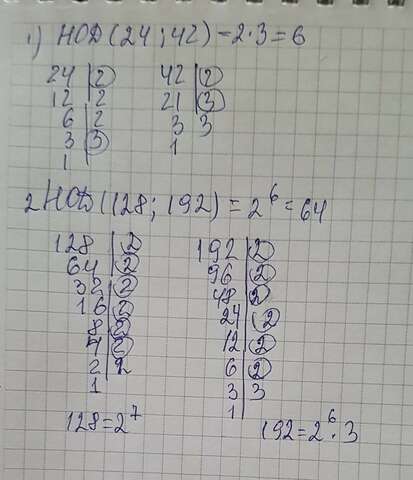 1) НОД(24;42)=2·3=6
24 | 2 42 | 2
12 | 2 21 | 3
6 | 2 3 | 3
3 | 3 1
1
2 НОД(128; 192) = 2⁶ = 64
128 | 2 192 | 2
64 | 2 96 | 2
32 | 2 48 | 2
16 | 2 24 | 2
8 | 2 12 | 2
4 | 2 6 | 2
2 | 2 3 | 3
1 1
128=2⁷ 192=2⁶·3